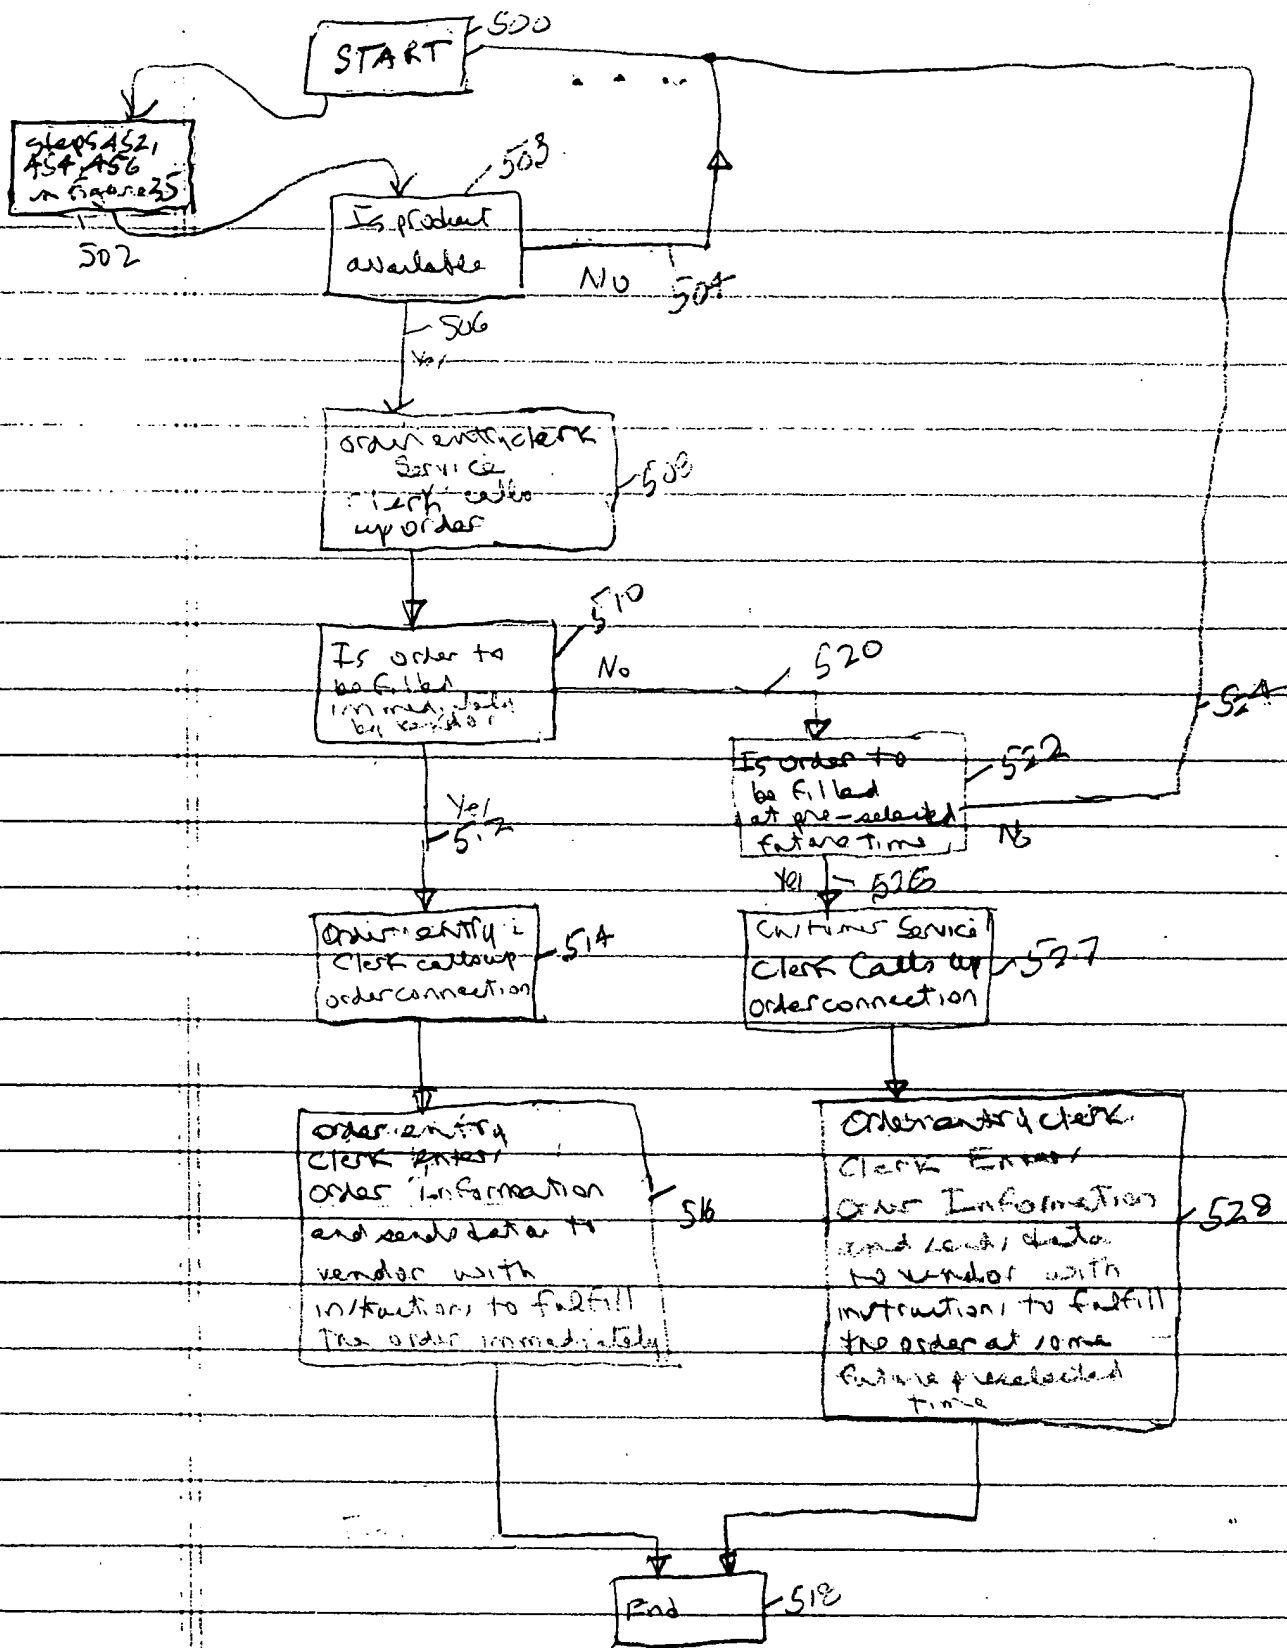 500
START
steps 452,
454, 456
in figure 35
502
503
Is product
available
No
504
506
Yes
order entry clerk
Service
clerk calls
up order
508
510
Is order to
be filled
immediately
by vendor
No
520
524
Is order to
be filled
at pre-selected
future time
522
No
Yes
512
Yes
526
Order entry
Clerk calls up
order connection
514
Customer Service
Clerk Calls up
order connection
527
order entry
Clerk Enters
order Information
and sends data to
vendor with
instructions to fulfill
The order immediately
516
Order entry clerk
Clerk Enters
Order Information
and sends data
to vendor with
instructions to fulfill
the order at some
future preselected
time
528
End
518